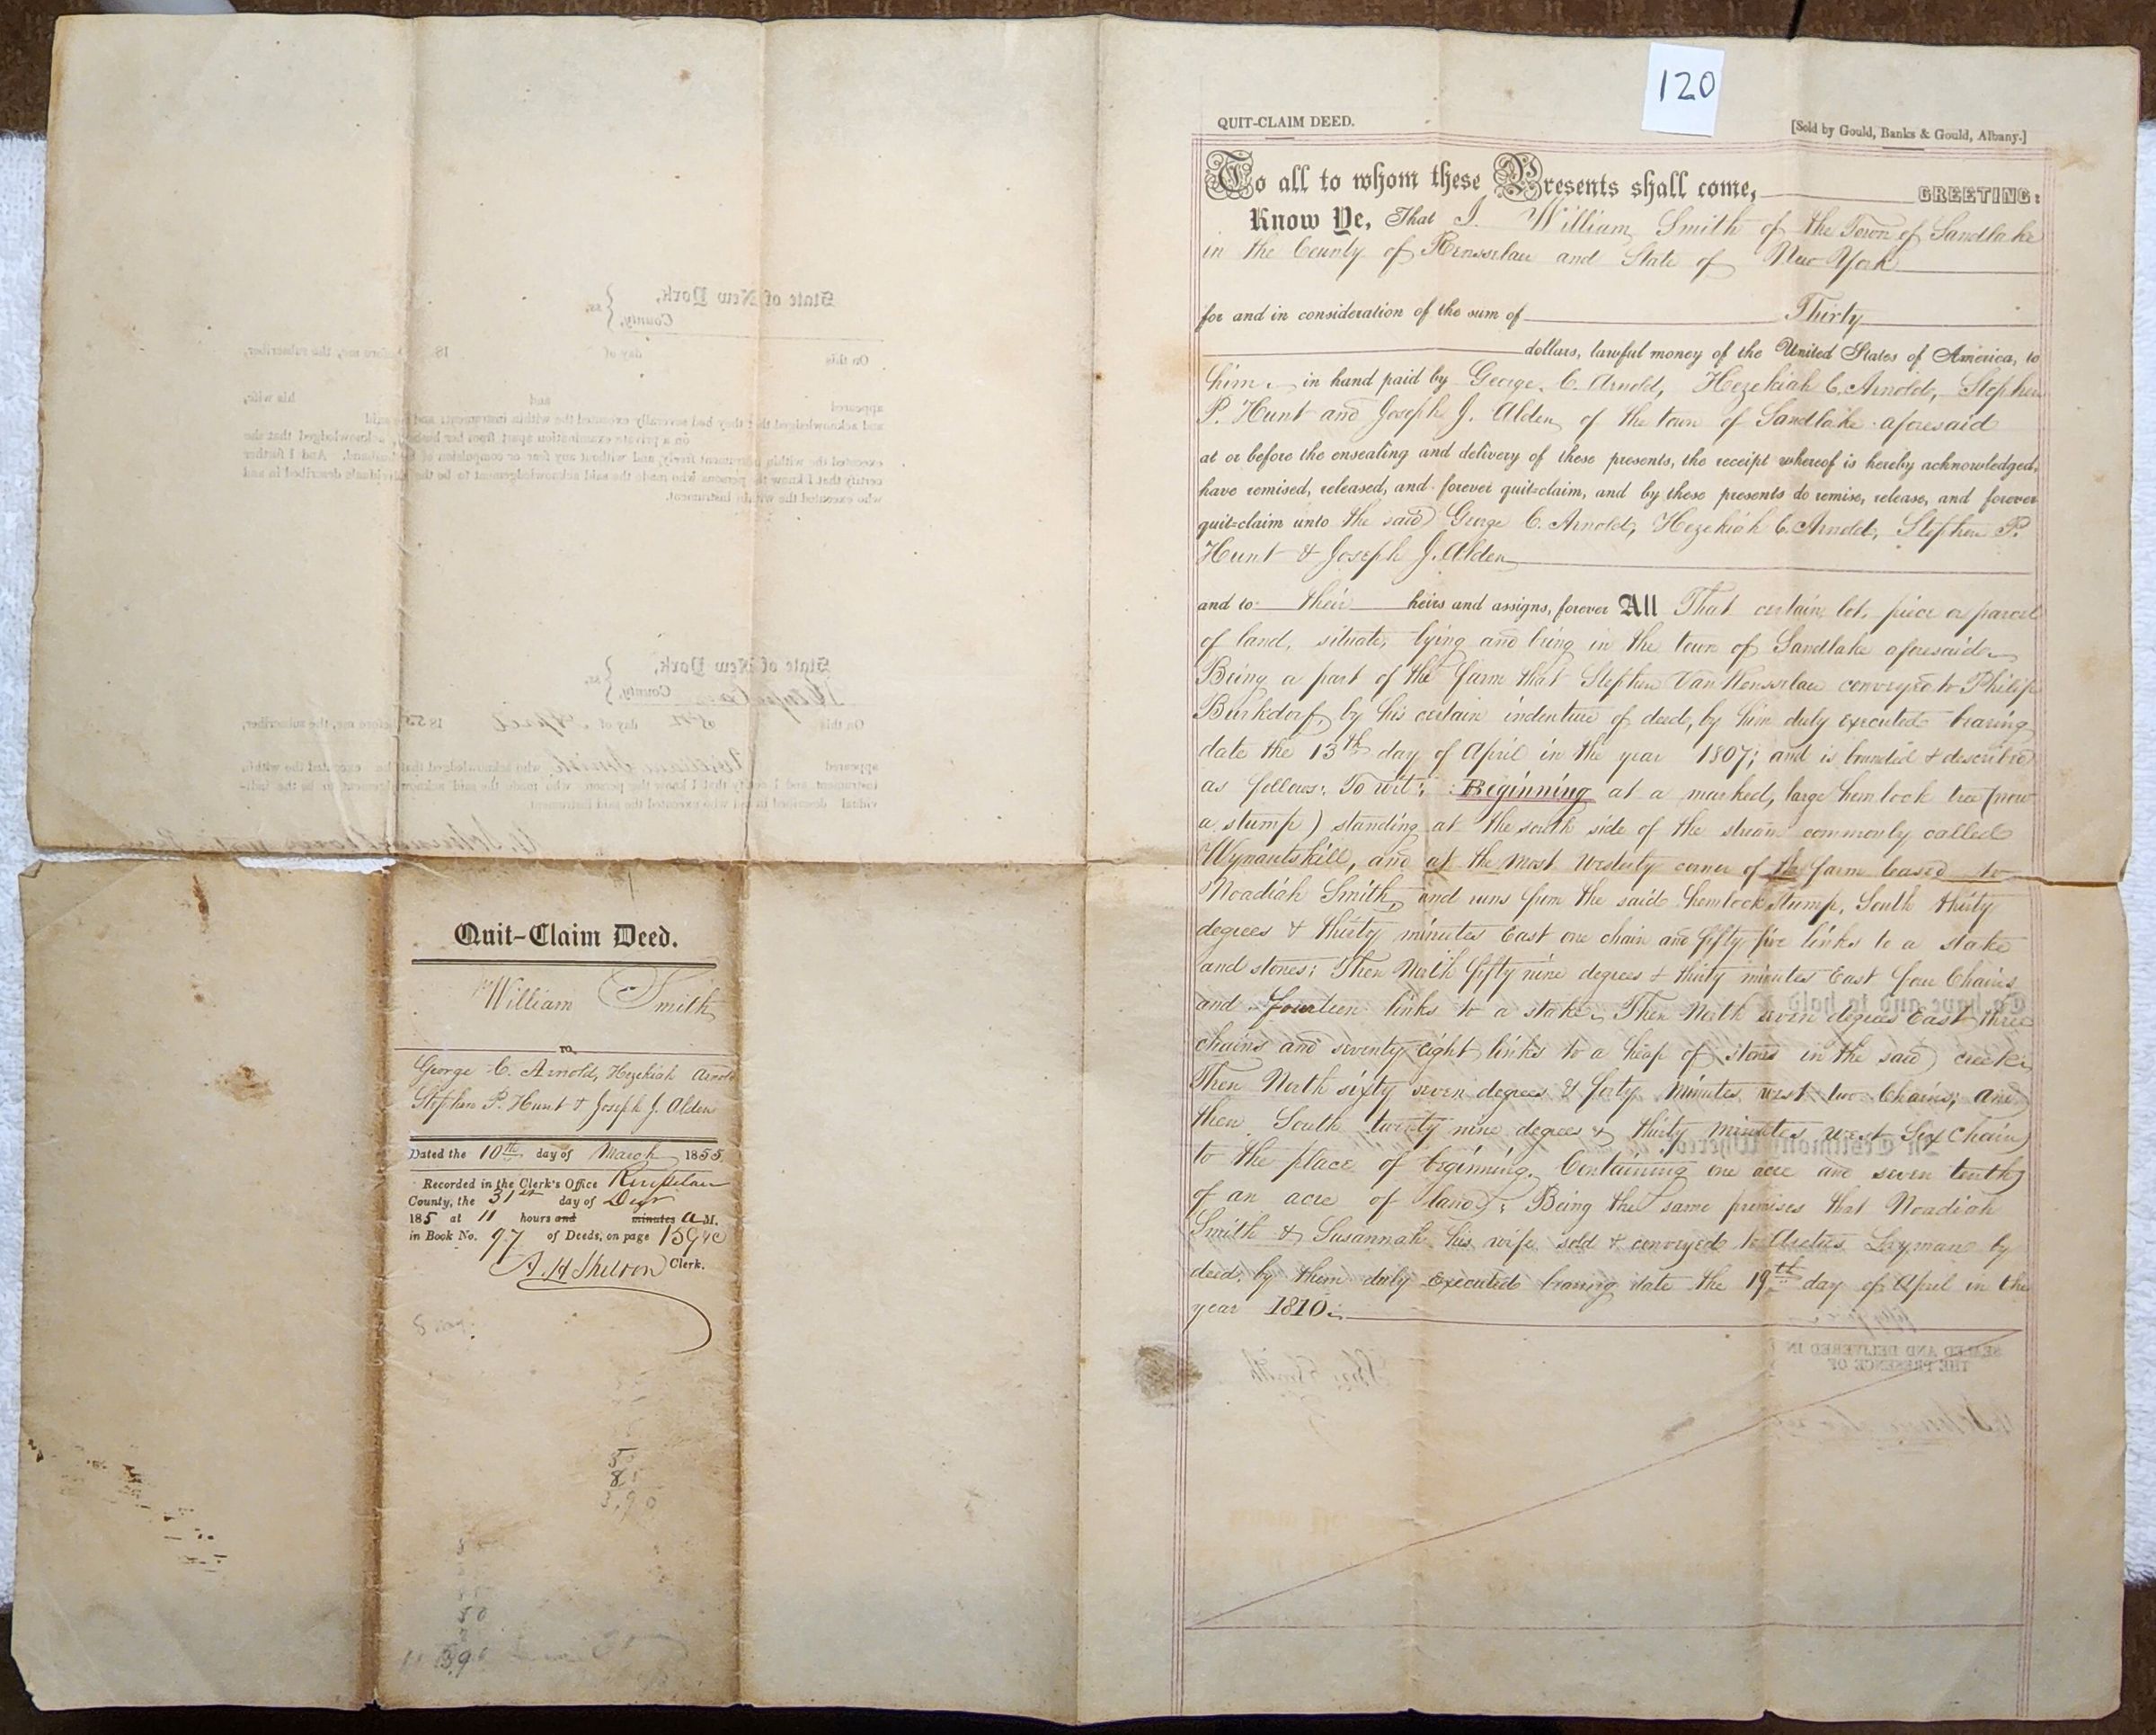 120
QUIT-CLAIM DEED.
[Sold by Gould, Banks & Gould, Albany.]
To all to whom these Presents shall come, GREETING:
Know Ye, That I William Smith of the Town of Sandlake
in the County of Rensselaer and State of New York
for and in consideration of the sum of Thirty
dollars, lawful money of the United States of America, to
him in hand paid by George C. Arnold, Hezekiah C. Arnold, Stephen
P. Hunt and Joseph J. Alden of the town of Sandlake aforesaid
at or before the ensealing and delivery of these presents, the receipt whereof is hereby acknowledged,
have remised, released, and forever quit-claim, and by these presents do remise, release, and forever
quit-claim unto the said George C. Arnold, Hezekiah C. Arnold, Stephen P.
Hunt & Joseph J. Alden
and to their heirs and assigns, forever All That certain lot, piece or parcel
of land, situate, lying and being in the town of Sandlake aforesaid
Being a part of the farm that Stephen Van Rensselaer conveyed to Philip
Burkdorf by his certain indenture of deed, by him duly executed bearing
date the 13th day of April in the year 1807; and is bounded & described
as follows: To wit: Beginning at a marked, large hemlock tree (now
a stump) standing at the south side of the stream commonly called
Wynantskill, and at the most westerly corner of the farm leased to
Noadiah Smith, and runs from the said hemlock stump, South thirty
degrees & thirty minutes East one chain and fifty five links to a stake
and stones; Then North fifty nine degrees & thirty minutes East four Chains
and fourteen links to a stake. Then North seven degrees East three
chains and seventy eight links to a heap of stones in the said creek;
Then North sixty seven degrees & forty minutes west two Chains; and
then South twenty nine degrees & thirty minutes west Six Chains
to the place of beginning. Containing one acre and seven tenths
of an acre of land; Being the same premises that Noadiah
Smith & Susannah his wife sold & conveyed to Aretus Lyman by
deed, by them duly executed bearing date the 19th day of April in the
year 1810.
State of New York,
County, ss.
On this day of 18 before me, the subscriber,
appeared and his wife,
and acknowledged that they had severally executed the within instrument; and the said
on a private examination apart from her husband, acknowledged that she
executed the within instrument freely, and without any fear or compulsion of her husband. And I further
certify that I know the persons who made the said acknowledgement to be the individuals described in and
who executed the within instrument.
State of New York,
County, ss.
On this day of April 1855 before me, the subscriber,
appeared William Smith who acknowledged that he executed the within
instrument and I certify that I know the person who made the said acknowledgement to be the indi-
vidual described in and who executed the said instrument.
To have and to hold
In Testimony Whereof,
SEALED AND DELIVERED IN
THE PRESENCE OF
Quit-Claim Deed.
William Smith
TO
George C. Arnold, Hezekiah Arnold
Stephen P. Hunt & Joseph J. Alden
Dated the 10th day of March 1855.
Recorded in the Clerk's Office Rensselaer
County, the 31st day of Decr
185 at 11 hours and minutes A M.
in Book No. 97 of Deeds, on page 159 &c
A. H. Sheldon Clerk.